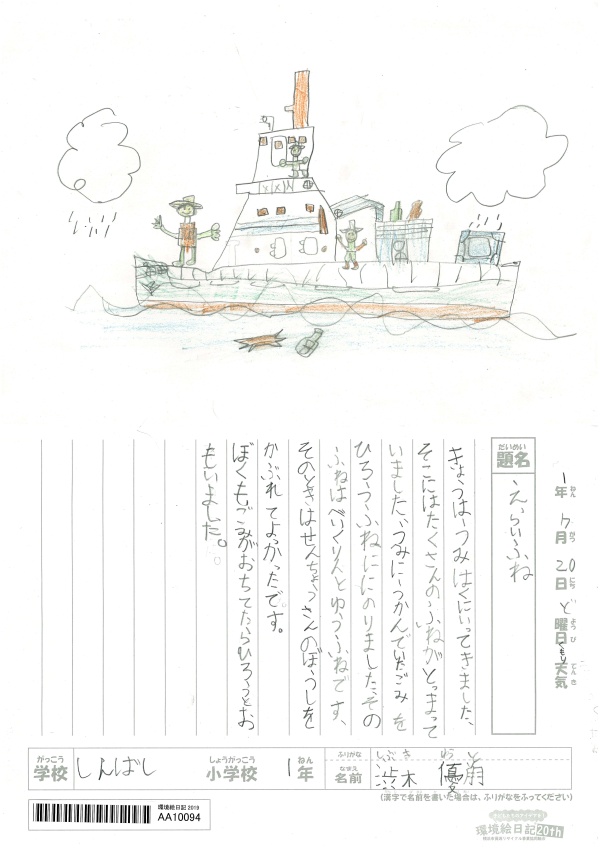 1年 7月 20日 ど曜日 くもり 天気
ねん がつ にち ようび てんき
だいめい
題名
えらいふね
きょうはうみはくにいってきました、
そこにはたくさんのふねがとまって
いました、うみにうかんでいたごみを
ひろうふねににのりました、その
ふねはべいくりんとゆうふねです、
そのときはせんちょうさんのぼうしを
かぶれてよかったです。
ぼくもごみがおちてたらひろうとお
もいました。
がっこう しょうがっこう ねん
学校 しんばし 小学校 1年
ふりがな しぶき
なまえ
名前 渋木 優
(漢字で名前を書いた場合は、ふりがなをふってください)
環境絵日記 2019
AA10094
環境絵日記 20th